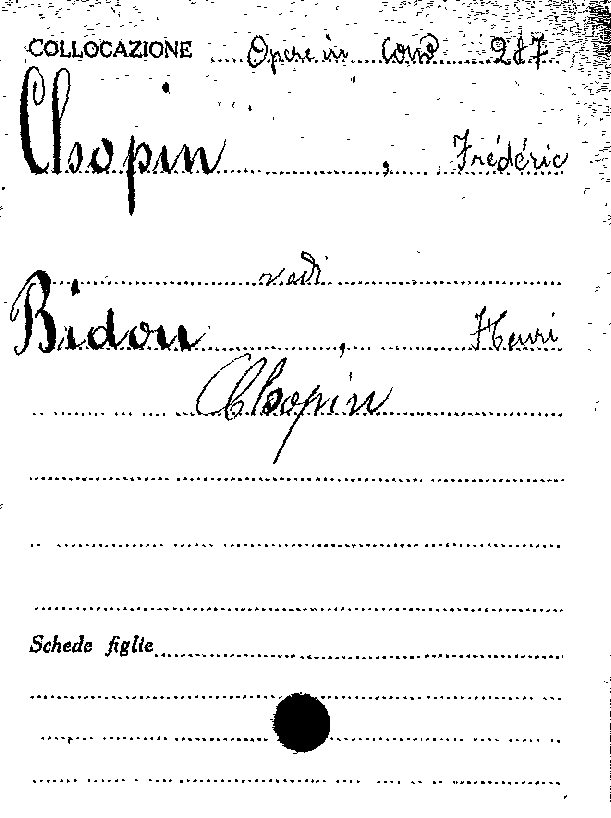 COLLOCAZIONE Opere in Cons 287
Chopin, Frédéric
vedi
Bidou, Henri
Chopin
Schede figlie